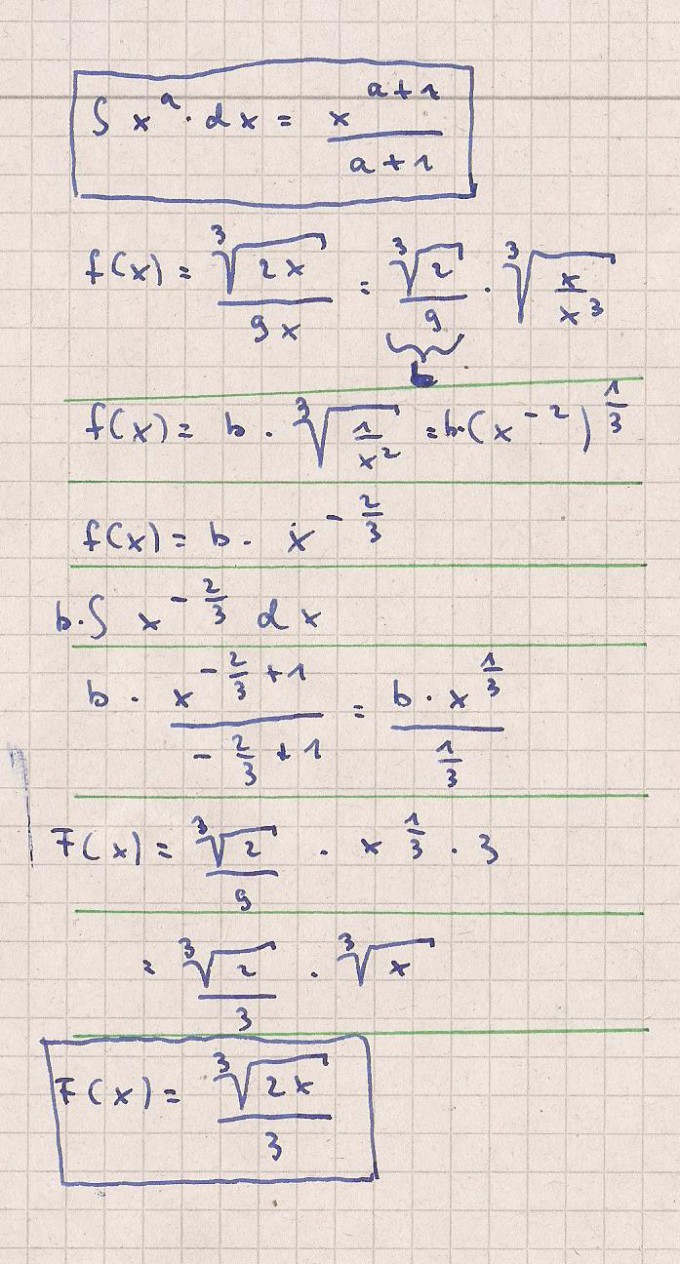 ∫ x^a · dx = x^(a+1) / (a+1)
f(x) = ∛(2x) / 9x = ∛2 / 9 · ∛(x / x^3)
b
f(x) = b · ∛(1 / x^2) = b·(x^-2)^(1/3)
f(x) = b · x^(-2/3)
b·∫ x^(-2/3) dx
b · x^(-2/3 +1) / (-2/3 +1) = b · x^(1/3) / (1/3)
F(x) = ∛2 / 9 · x^(1/3) · 3
= ∛2 / 3 · ∛x
F(x) = ∛(2x) / 3